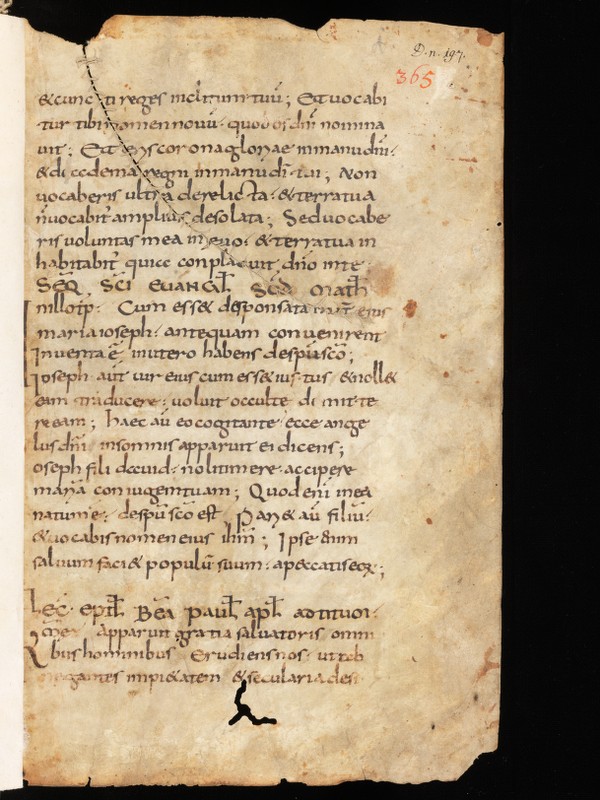 D. n. 197.
365
& cunc ti reges inclitum tuū; Et vocabi
tur tibi nomen novū· quod os dnī nomina
vit; Et eris corona gloriae in manu dnī·
& diadema regni in manu dī tui; Non
vocaberis ultra derelicta· & terra tua
n̄ vocabit̄ amplius desolata; Sed vocabe
ris voluntas mea in ea· & terra tua in
habitabit̄ quia conplacuit dnō in te·
SEQ SCI EVANGEL̄ SCD MATH̄
In illo tp̄· Cum ess& desponsata mat̄ eius
maria ioseph· antequam convenirent
Inventa ē in utero habens de spū sco;
Ioseph aut̄ vir eius cum ess& iustus & noll&
eam traducere· voluit occulte dimitte
re eam; haec aū eo cogitante· ecce ange
lus dnī insomnis apparuit ei dicens;
oseph fili david· noli timere accipere
maria coniugem tuam; Quod enī in ea
natum ē· de spū sco est Pari& aū filiū·
& vocabis nomen eius ihm̄; Ipse enim
salvum faci& populū suum· a peccatis eoꝝ;
Lec̄ epil̄ Bea paul̄ apl̄ ad titum·
apparuit gratia salvatoris omni
bus hominibus Erudiens nos· ut ab
negantes impi&atem & secularia desi